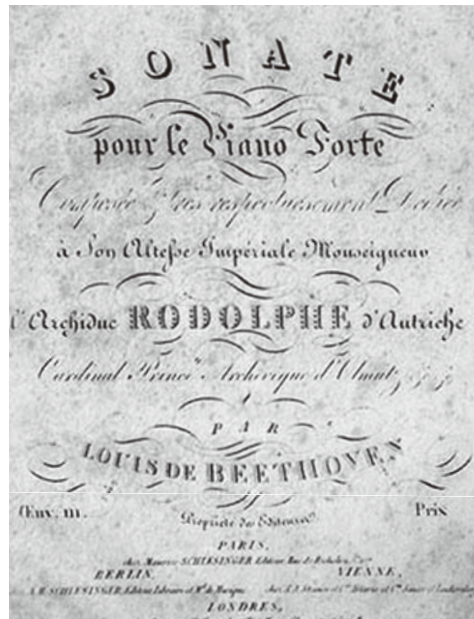 SONATE
pour le Piano Forte
Composée & très respectueusement Dediée
à Son Altesse Impériale Monseigneur
l'Archiduc RODOLPHE d'Autriche
Cardinal Prince Archevêque d'Olmütz
PAR
LOUIS DE BEETHOVEN
Œuv. 111. Prix
Propriété des Editeurs
PARIS,
chez Maurice SCHLESINGER, Editeur, Rue de Richelieu
BERLIN, VIENNE,
A. M. SCHLESINGER, Editeur Libraire et Md. de Musique
LONDRES,